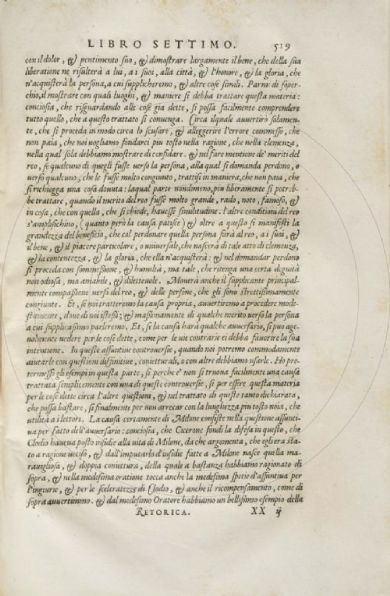 LIBRO SETTIMO. 519
con il dolor, & pentimento suo, & dimostrare largamente il bene, che della sua
liberatione ne risulterà a lui, a i suoi, alla città, & l'honore, & la gloria, che
n'acquisterà la persona, a cui supplicheremo, & altre cose simili. Parmi di soper-
chio, il mostrare con quali luoghi, & maniere si debba trattare questa materia:
conciosia, che risguardando alle cose già dette, si possa facilmente comprendere
tutto quello, che a questo trattato si convenga. Circa ilquale avvertirò solamen-
te, che si proceda in modo circa lo scusare, & alleggerire l'errore commesso, che
non paia, che noi vogliamo fondarci più tosto nella ragione, che nella clemenza,
nella qual sola debbiamo mostrare di confidare. & nel fare mentione de' meriti del
reo, se qualcuno di questi fusse verso la persona, alla qual si domanda perdono, o
verso qualcuno, che le fusse molto congiunto, trattisi in maniera, che non paia, che
si richiegga una cosa dovuta: laqual parte nondimeno più liberamente si potreb-
be trattare, quando il merito del reo fusse molto grande, rado, noto, famoso, &
in cosa, che con quella, che si chiede, havesse similitudine: l'altre conditioni del reo
s'amplifichino, (quanto però la causa patisce) & oltre a questo si manifesti la
grandezza del beneficio, che cal perdonare quella persona farà al reo, a i suoi, &
il bene, & il piacere particolare, o universale, che nascerà di tale atto di clemenza,
& la contentezza, & la gloria, che ella n'acquisterà: & nel domandar perdono
si proceda con sommissione, & humiltà, ma tale, che ritenga una certa dignità
non odiosa, ma amabile, & dilettevole. Moverà anche il supplicante principal-
mente compassione verso di se, & delle persone, che gli sono strettissimamente
congiunte. Et, se noi tratteremo la causa propria, avvertiremo a procedere mode-
stamente, dove di noi stessi: & massimamente di qualche merito verso la persona
a cui supplicaremo parleremo. Et, se la causa harà qualche avversario, si può age-
volmente vedere per le cose dette, come per le vie contrarie ei debba fiaccare la sua
intentione. In queste assuntive controversie, quando noi potremo commodamente
aiutarle con questioni definitive, conietturali, o con altre debbiamo usarle. Ho pre-
termessi gli esempi in questa parte, si perche e' non si truova facilmente una causa
trattata semplicemente con una di queste controversie, si per essere questa materia
per le cose dette circa l'altre questioni, & nel trattato di questo tanto dichiarata,
che possa bastare, si finalmente per non arrecar con la lunghezza più tosto noia, che
utilità a i lettori. La causa certamente di Milone consiste nella questione assunti-
va per fatto dell'avversario: conciosia, che Cicerone fondi la difesa in questo, che
Clodio haveva posto insidie alla vita di Milone, da che argomenta, che egli era sta-
to a ragione ucciso, & dall'imputarsi d'insidie fatte a Milone nasce quella ma-
ravigliosa, & doppia coniettura, della quale a bastanza habbiamo ragionato di
sopra, & nella medesima oratione tocca anche la medesima spetie d'assuntiva per
l'ingiurie, & per le sceleratezze di Clodio, & anche il ricompensamento, come di
sopra avvertimmo. & dal medesimo Oratore habbiamo un bellissimo esempio della
RETORICA. XX ij